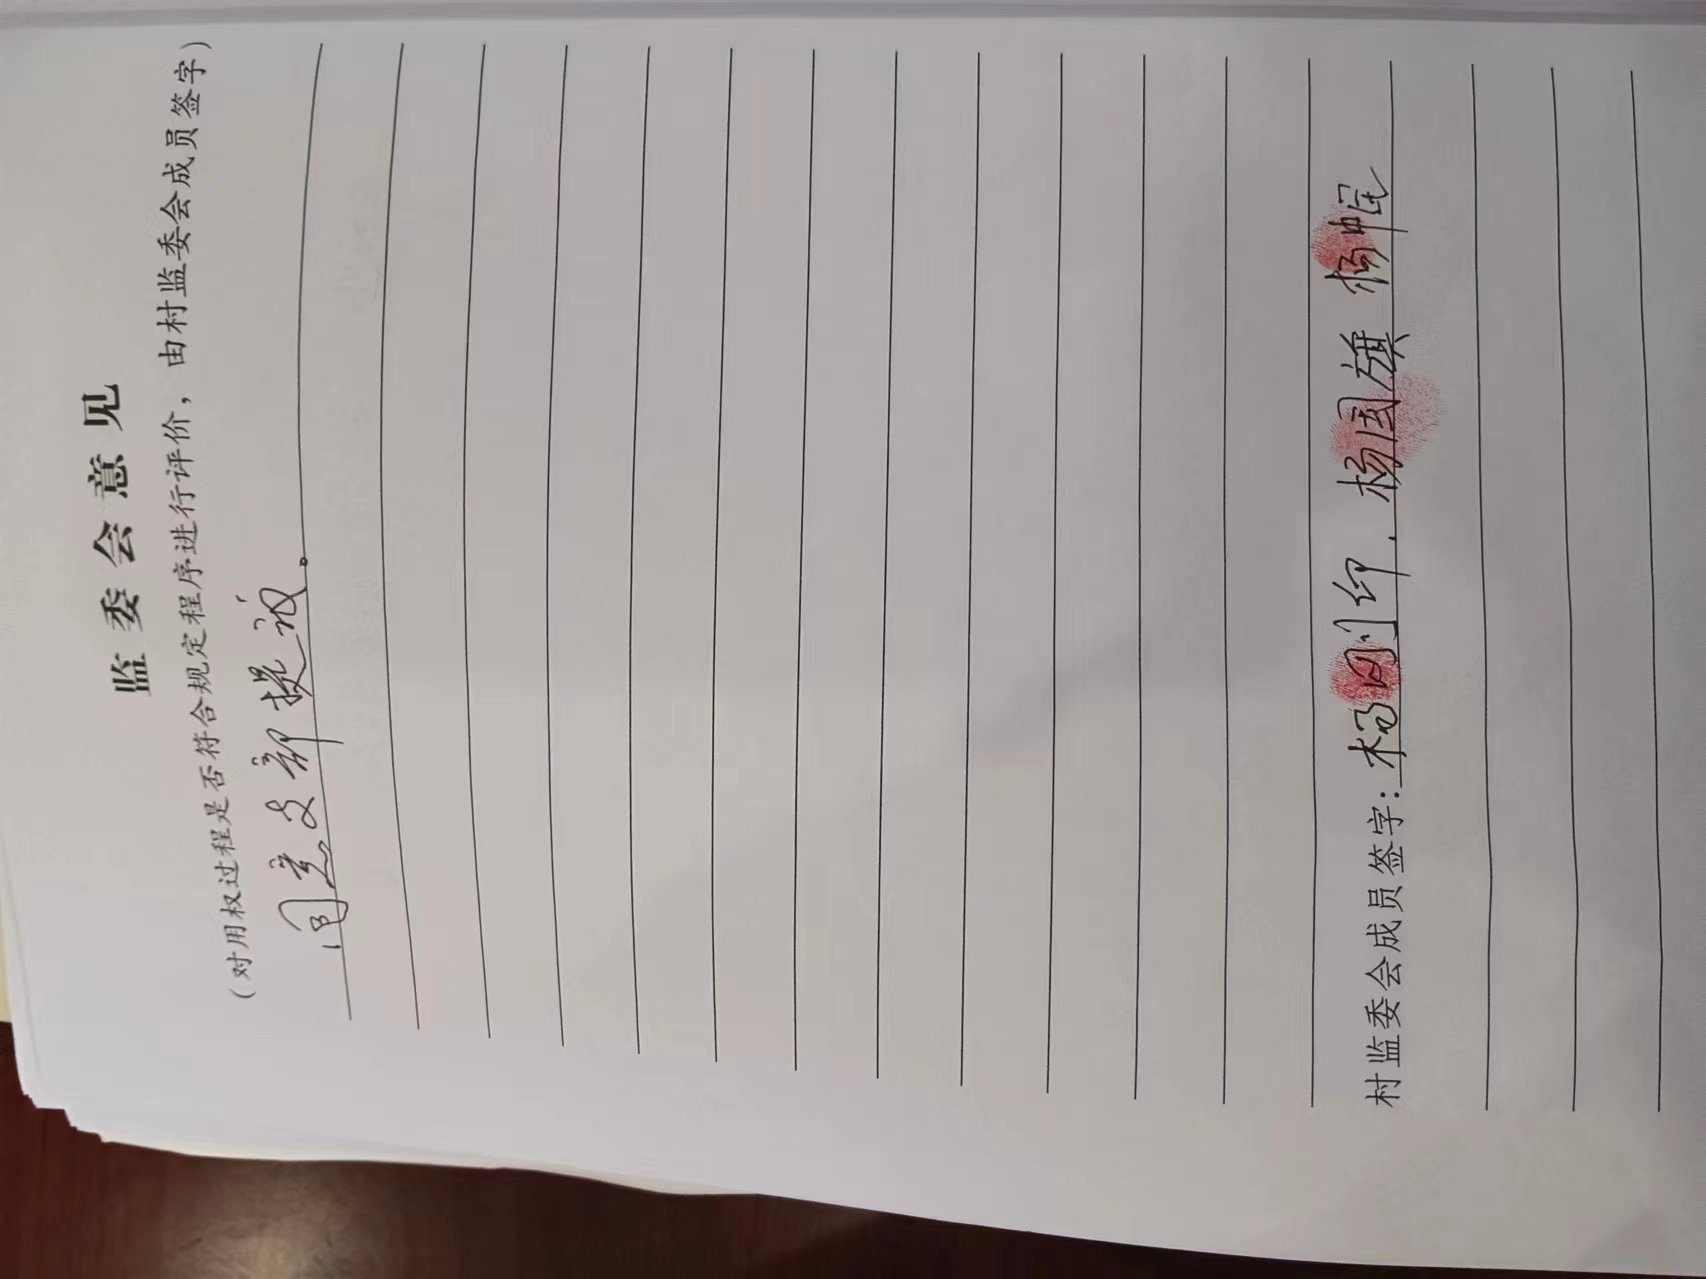 监委会意见
（对用权过程是否符合规定程序进行评价，由村监委会成员签字）
同意支部提议。
村监委会成员签字：杨刚印．杨国旗 杨中民